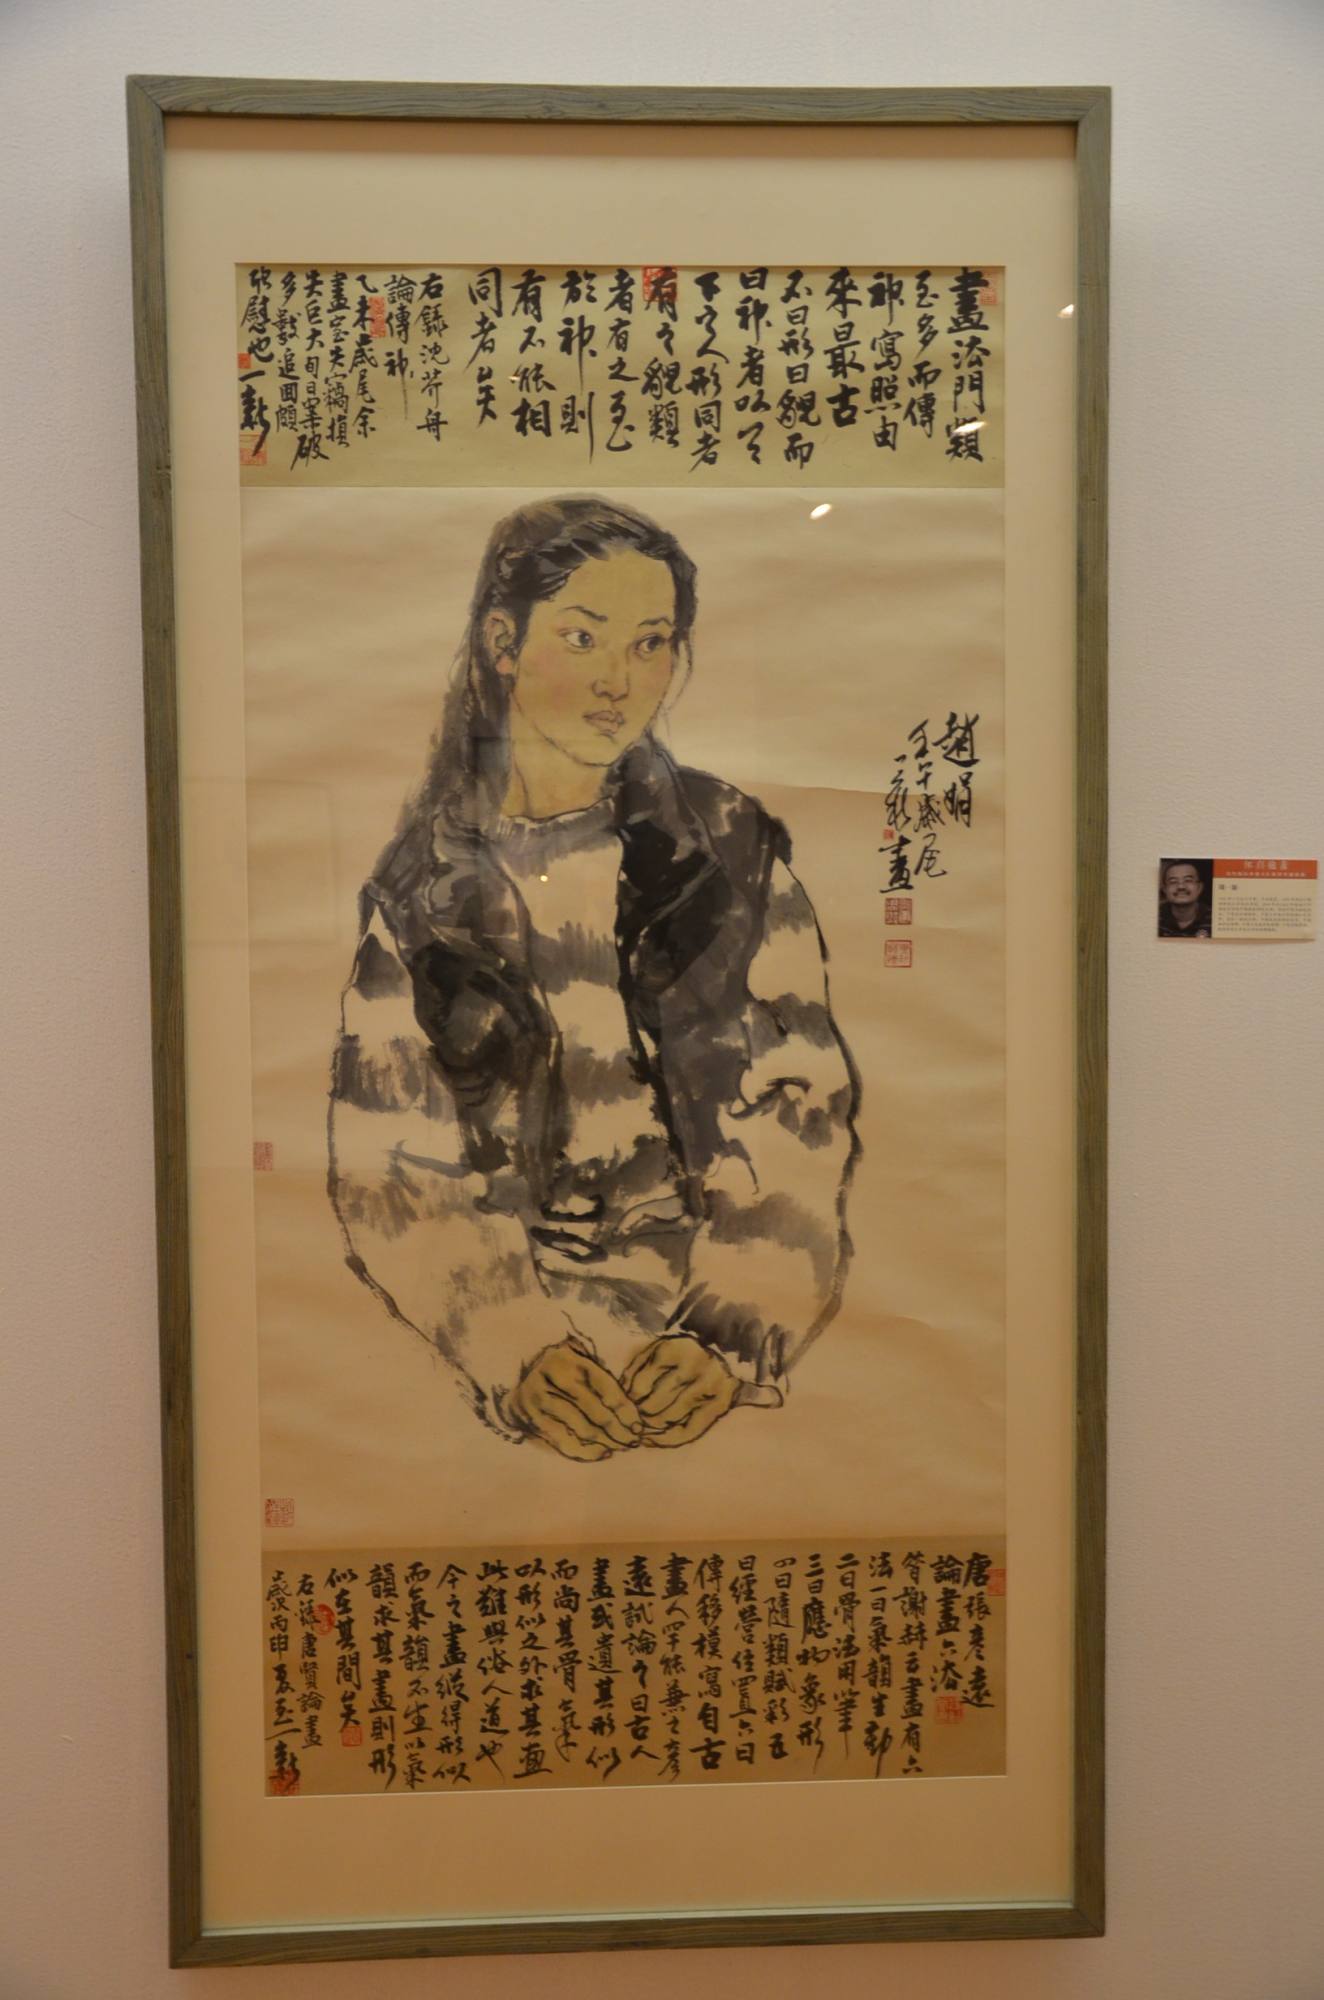 畫法門類
至多而傳
神寫照由
來最古
不曰形曰貌而
曰神者以天
下之人形同者
有之貌類
者有之至
於神則
有不能相
同者矣
右錄沈芥舟
論傳神
乙未歲尾余
畫室失竊損
失巨大旬日案破
多數追回頗
欣慰也一新
趙娟
壬午歲尾
一新畫
唐張彥遠
論畫六法
昔謝赫云畫有六
法一曰氣韻生動
二曰骨法用筆
三曰應物象形
四曰隨類賦彩五
曰經營位置六曰
傳移模寫自古
畫人罕能兼之彥
遠試論之曰古人
畫或遺其形似
而尚其骨氣
以形似之外求其畫
此難與俗人道也
今之畫縱得形似
而氣韻不生以氣
韻求其畫則形
似在其間矣
右錄唐賢論畫
歲次丙申夏至一新